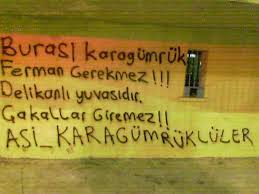 Burasi karagümrük
Ferman Gerekmez!!!
Delikanlı yuvasıdır.
Çakallar Giremez!!
ASİ_KARAGÜMRÜKLÜLER